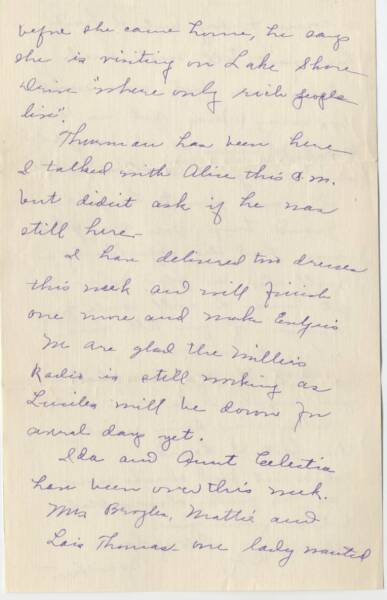 before she came home, he says
she is visiting on Lake Shore
Drive "where only rich people
live".
Thurman has been here
I talked with Alice this a.m.
but didn't ask if he was
still here.
I have delivered two dresses
this week and will finish
one more and make
We are glad the Miller's
Radio is still working as
Lucile's will be down for
several days yet.
Ida and Aunt Celestia
have been over this week.
Mrs. Mattie and
Lois Thomas one lady wanted